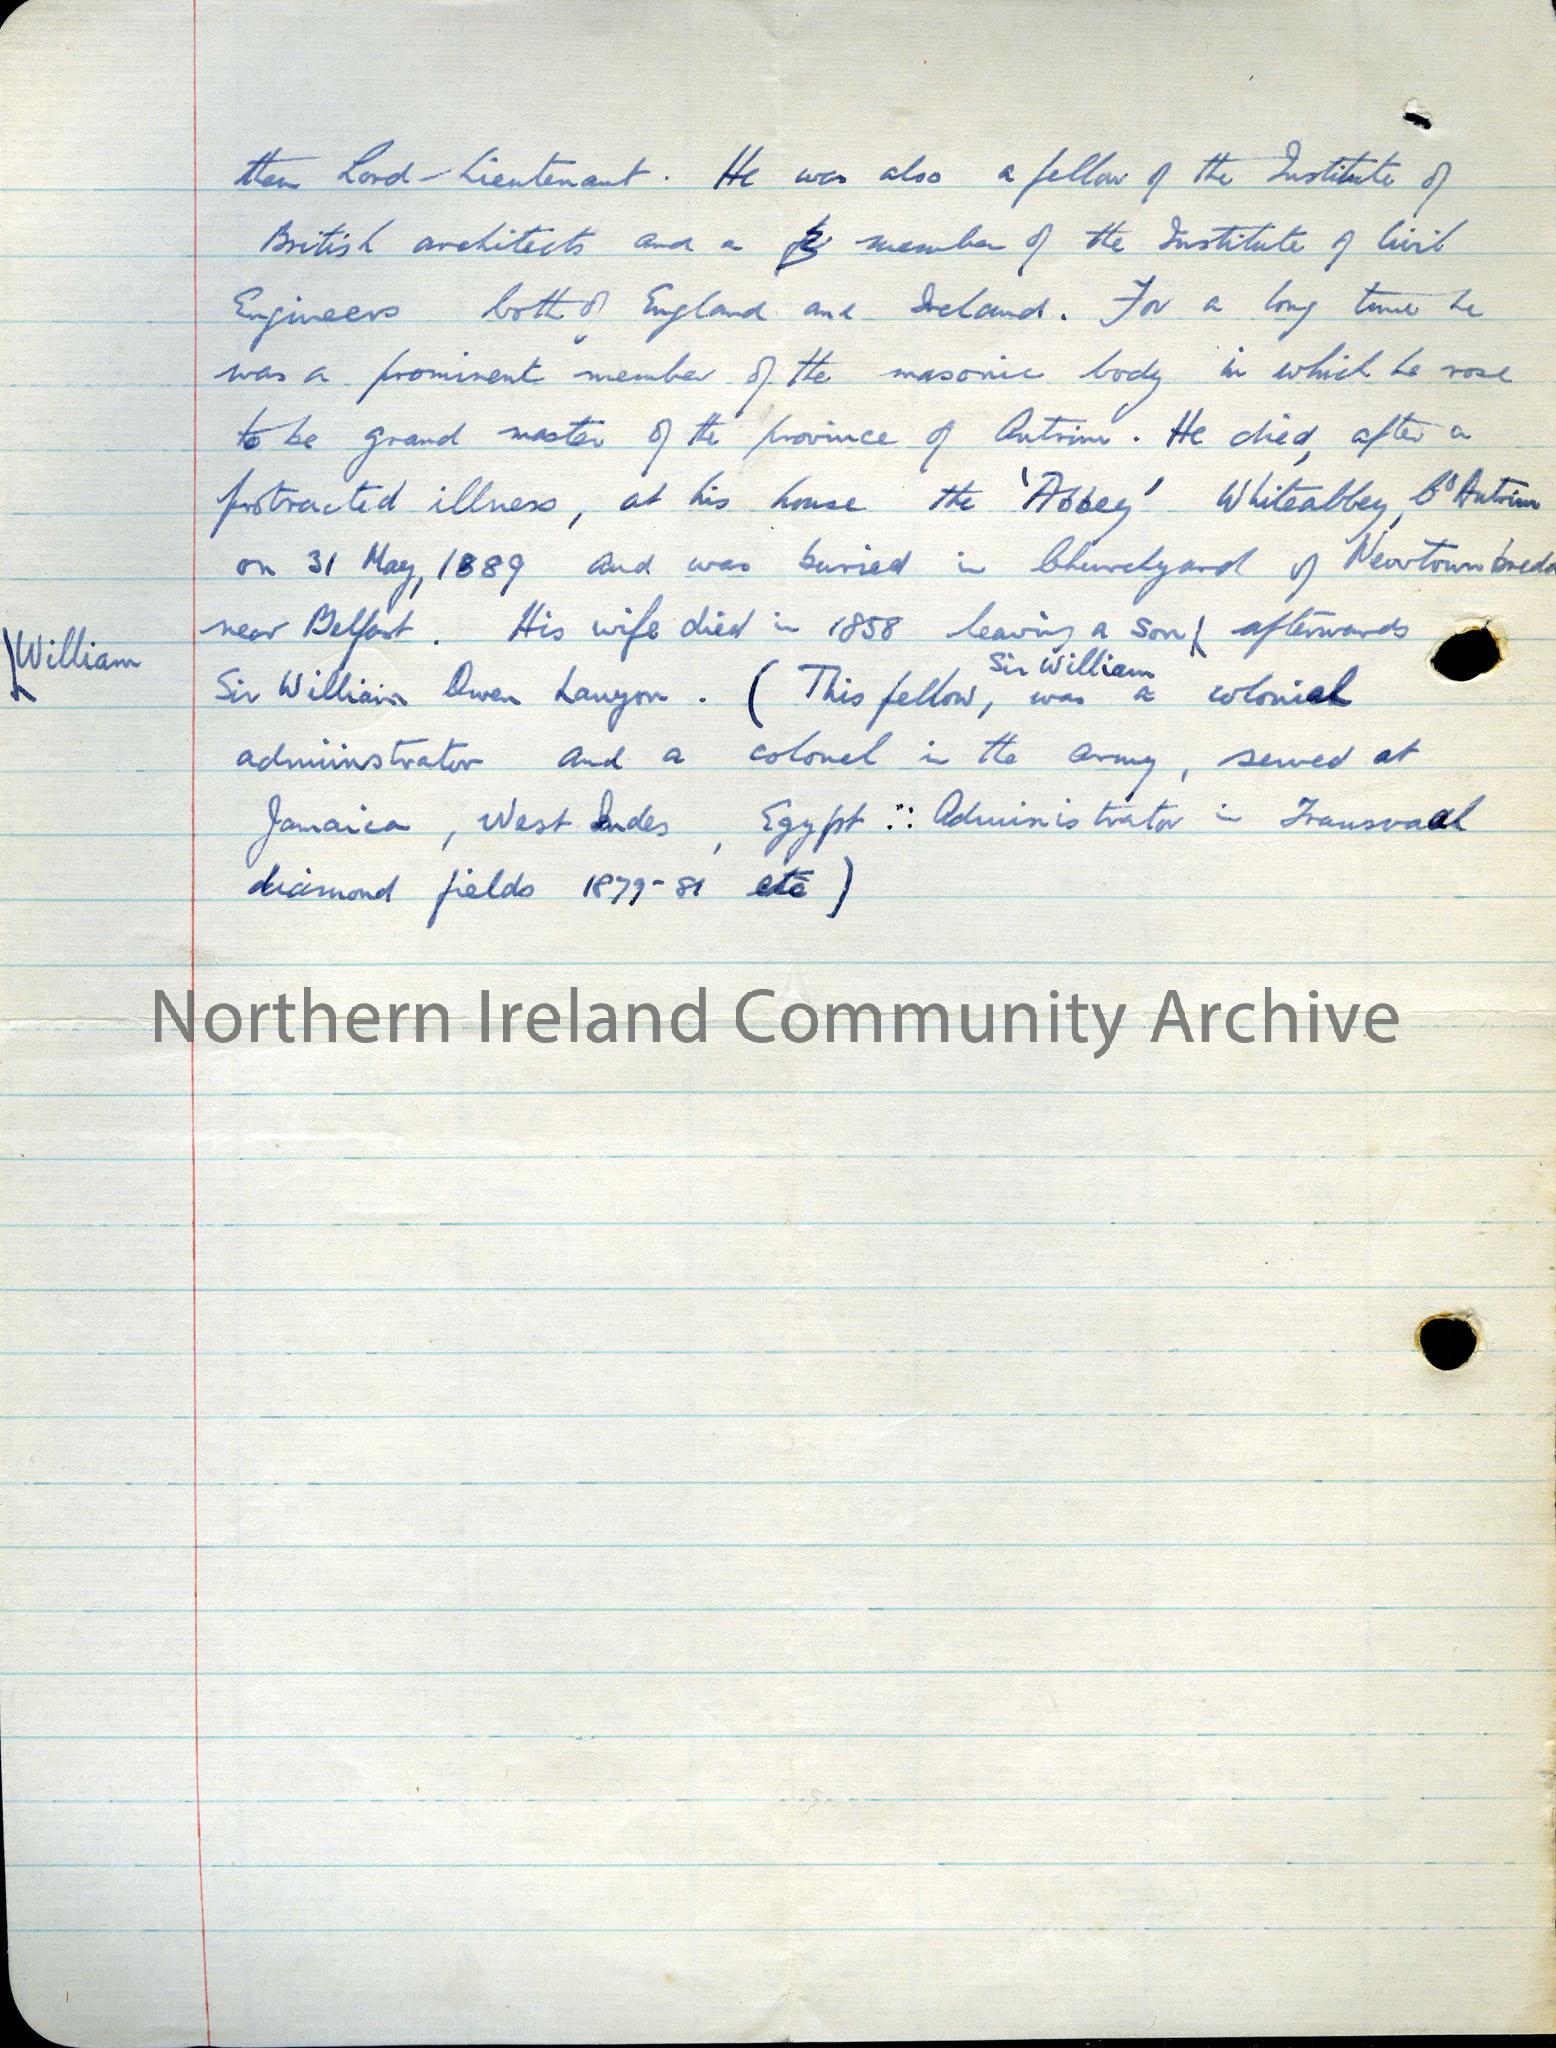 then Lord-Lieutenant. He was also a fellow of the Institute of
British architects and a member of the Institute of Civil
Engineers both of England and Ireland. For a long time he
was a prominent member of the masonic body in which he rose
to be grand master of the province of Antrim. He died, after a
protracted illness, at his house the 'Abbey' Whiteabbey, Co Antrim
on 31 May, 1889 and was buried in Churchyard of Newtownbreda
near Belfast. His wife died in 1858 leaving a son afterwards
William
Sir William
Sir William Owen Lanyon. (This fellow, was a colonial
administrator and a colonel in the army, served at
Jamaica, West Indes, Egypt :: Administrator in Transvaal
diamond fields 1879-81 etc)
Northern Ireland Community Archive